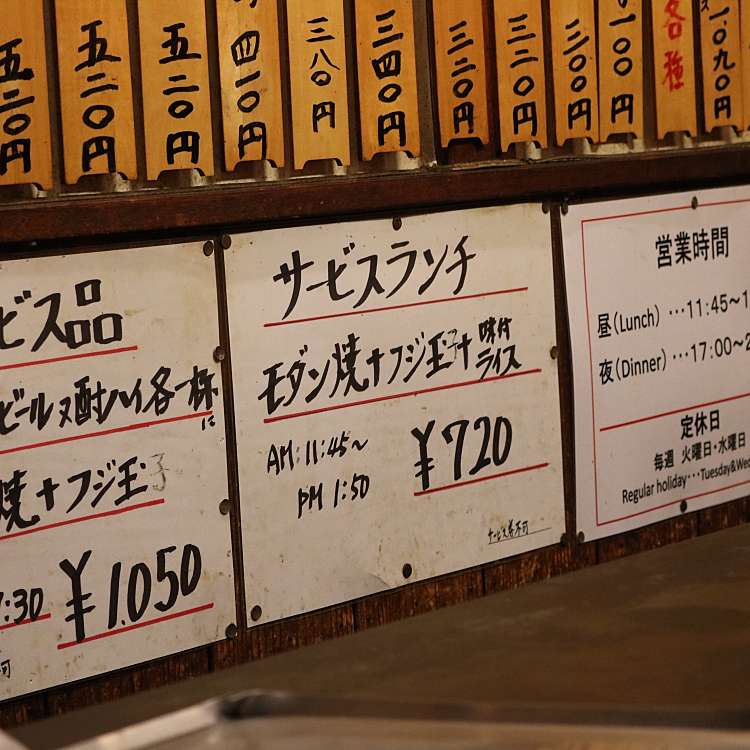 五二〇円
五二〇円
五二〇円
四二〇円
三八〇円
三四〇円
三二〇円
三二〇円
三〇〇円
一〇〇円
各種
一、〇九〇円
ビス品
ビール又酎ハイ各一杯に
焼+フジ玉子
:30 ¥1.050
サービスランチ
モダン焼+フジ玉子+味付ライス
AM:11:45～
PM 1:50
¥720
サービス券不可
営業時間
昼(Lunch) …11:45～1
夜(Dinner) …17:00～2
定休日
毎週 火曜日・水曜日
Regular holiday…Tuesday&Wed